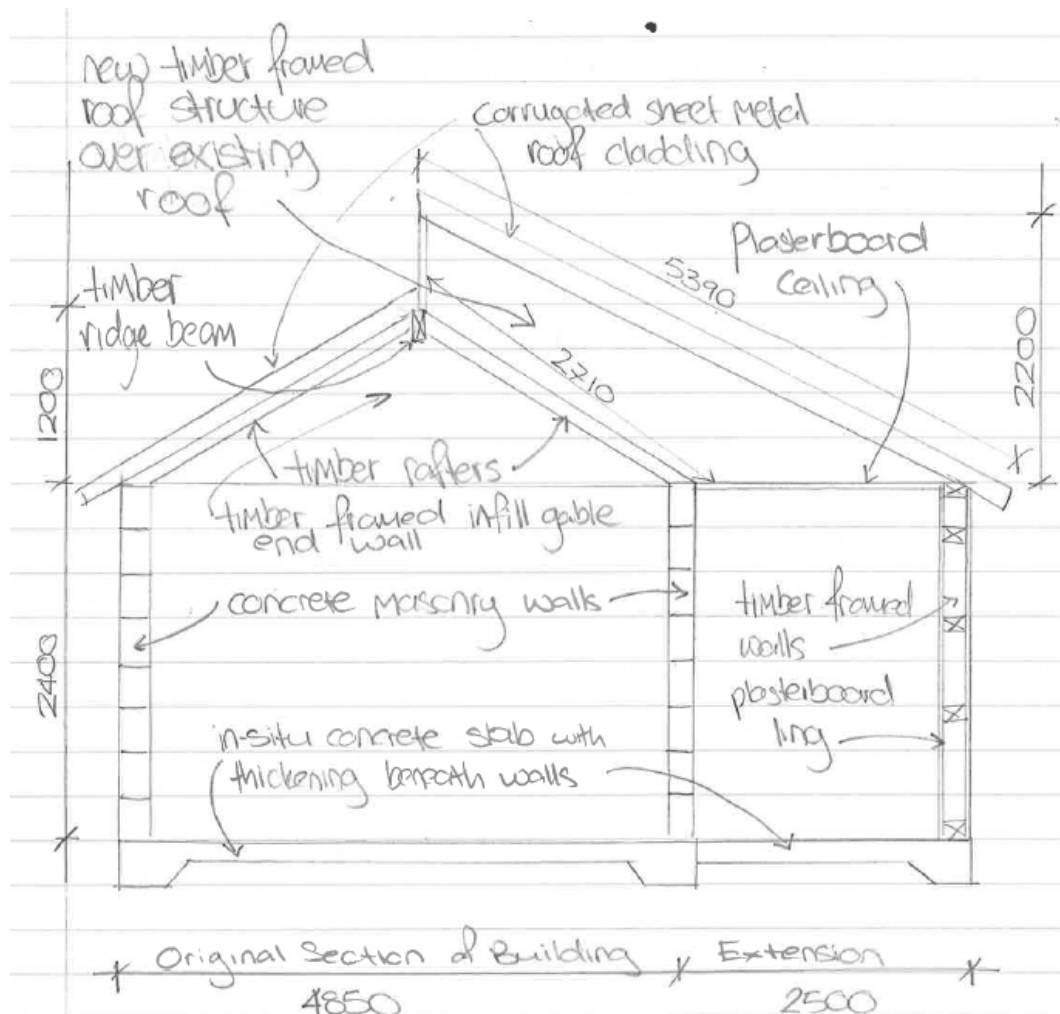 new timber framed
roof structure
over existing
roof
corrugated sheet metal
roof cladding
Plasterboard
ceiling
5390
2200
timber
ridge beam
2710
1200
timber rafters
timber framed infill gable
end wall
concrete masonry walls
timber framed
walls
plasterboard
ling
2400
in-situ concrete slab with
thickening beneath walls
Original Section of Building
Extension
4850
2500